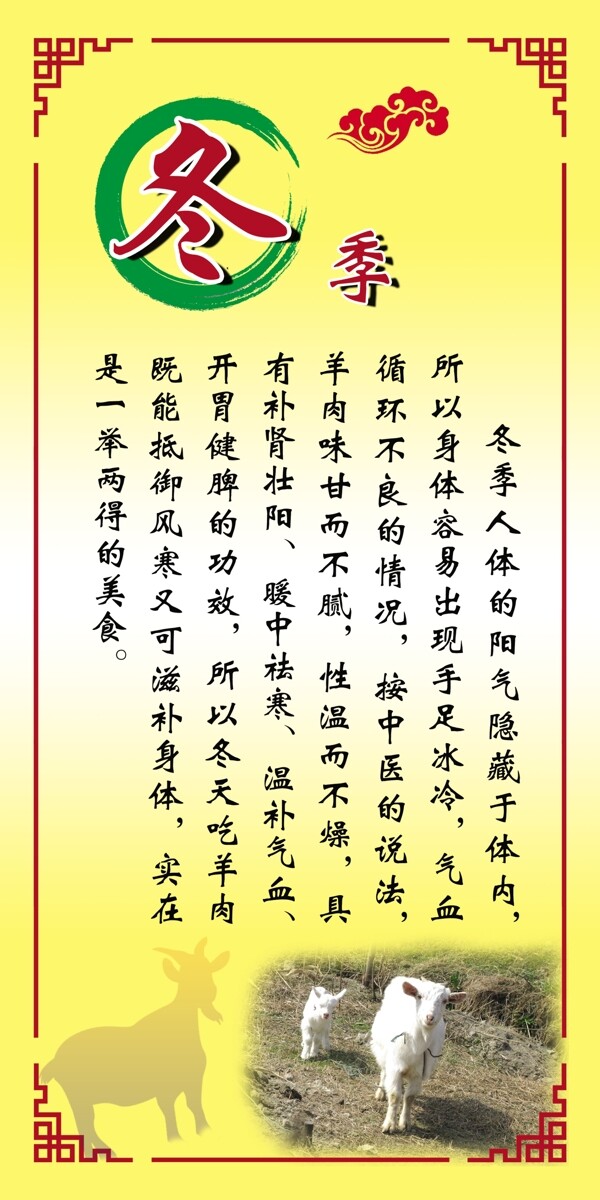 冬季
冬季人体的阳气隐藏于体内，
所以身体容易出现手足冰冷，气血
循环不良的情况，按中医的说法，
羊肉味甘而不腻，性温而不燥，具
有补肾壮阳、暖中祛寒、温补气血、
开胃健脾的功效，所以冬天吃羊肉
既能抵御风寒又可滋补身体，实在
是一举两得的美食。